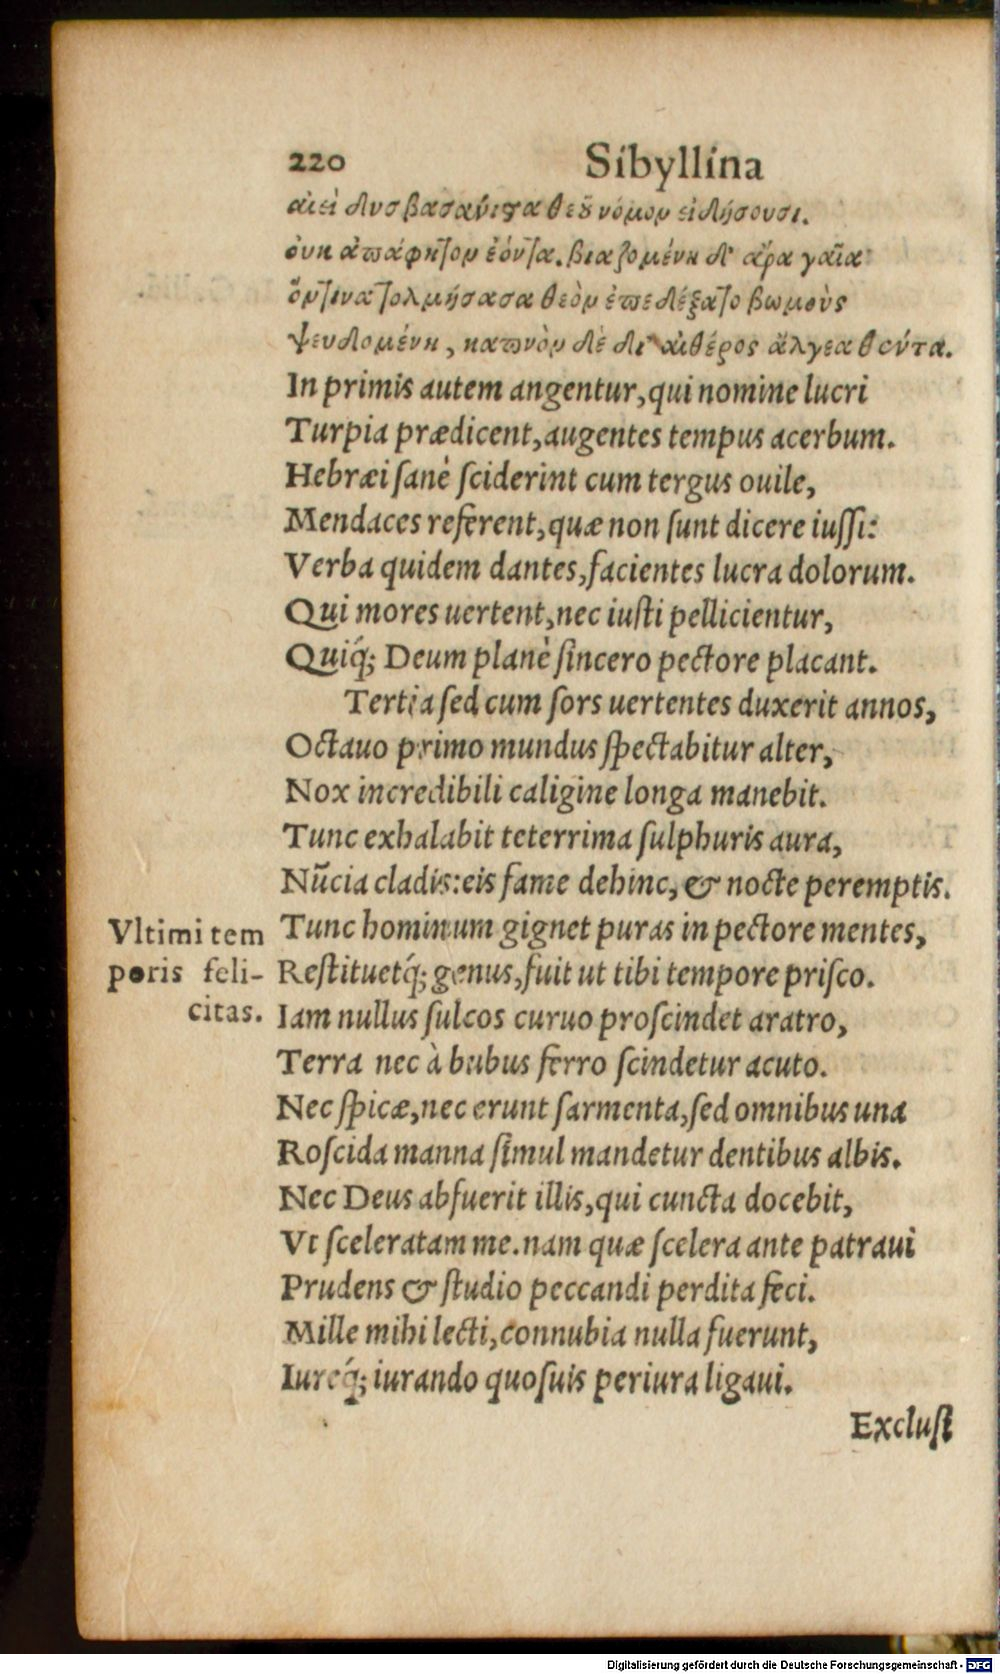 220 Sibyllina
αἰεὶ δυσβασάνιστα θεοῦ νόμον εἰδήσουσι.
οὐκ ἀπάφητον ἐόντα. βιαζομένη δ' ἄρα γαῖα
ὅντινα τολμήσασα θεὸν ἐπεδέξατο βωμοὺς
ψευδομένη, καπνὸν δὲ δι' αἰθέρος ἄλγεα θέντα.
In primis autem angentur, qui nomine lucri
Turpia prædicent, augentes tempus acerbum.
Hebræi ſanè ſciderint cum tergus ouile,
Mendaces referent, quæ non ſunt dicere iuſſi:
Verba quidem dantes, facientes lucra dolorum.
Qui mores uertent, nec iuſti pellicientur,
Quiq́; Deum planè ſincero pectore placant.
Tertia ſed cum ſors uertentes duxerit annos,
Octauo primo mundus ſpectabitur alter,
Nox incredibili caligine longa manebit.
Tunc exhalabit teterrima ſulphuris aura,
Nũcia cladis: eis fame dehinc, & nocte peremptis.
Vltimi tem Tunc hominum gignet puras in pectore mentes,
poris feli- Reſtituetq́; genus, fuit ut tibi tempore priſco.
citas. Iam nullus ſulcos curuo proſcindet aratro,
Terra nec à bubus ferro ſcindetur acuto.
Nec ſpicæ, nec erunt ſarmenta, ſed omnibus una
Roſcida manna ſimul mandetur dentibus albis.
Nec Deus abfuerit illis, qui cuncta docebit,
Vt ſceleratam me. nam quæ ſcelera ante patraui
Prudens & ſtudio peccandi perdita feci.
Mille mihi lecti, connubia nulla fuerunt,
Iureq́; iurando quoſuis periura ligaui.
Excluſi
Digitalisierung gefördert durch die Deutsche Forschungsgemeinschaft - DFG